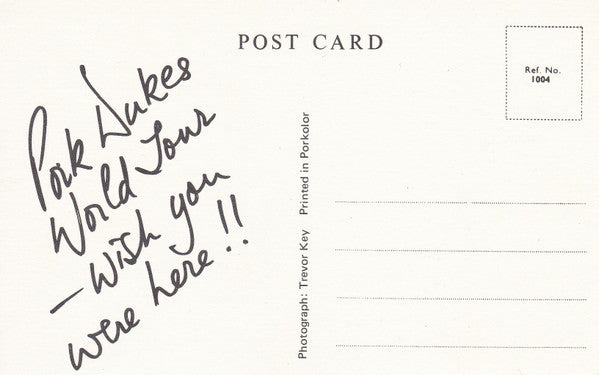 POST CARD
Ref. No.
1004
Pork Dukes
World Tour
– Wish you
were here!!
Photograph: Trevor Key Printed in Porkolor